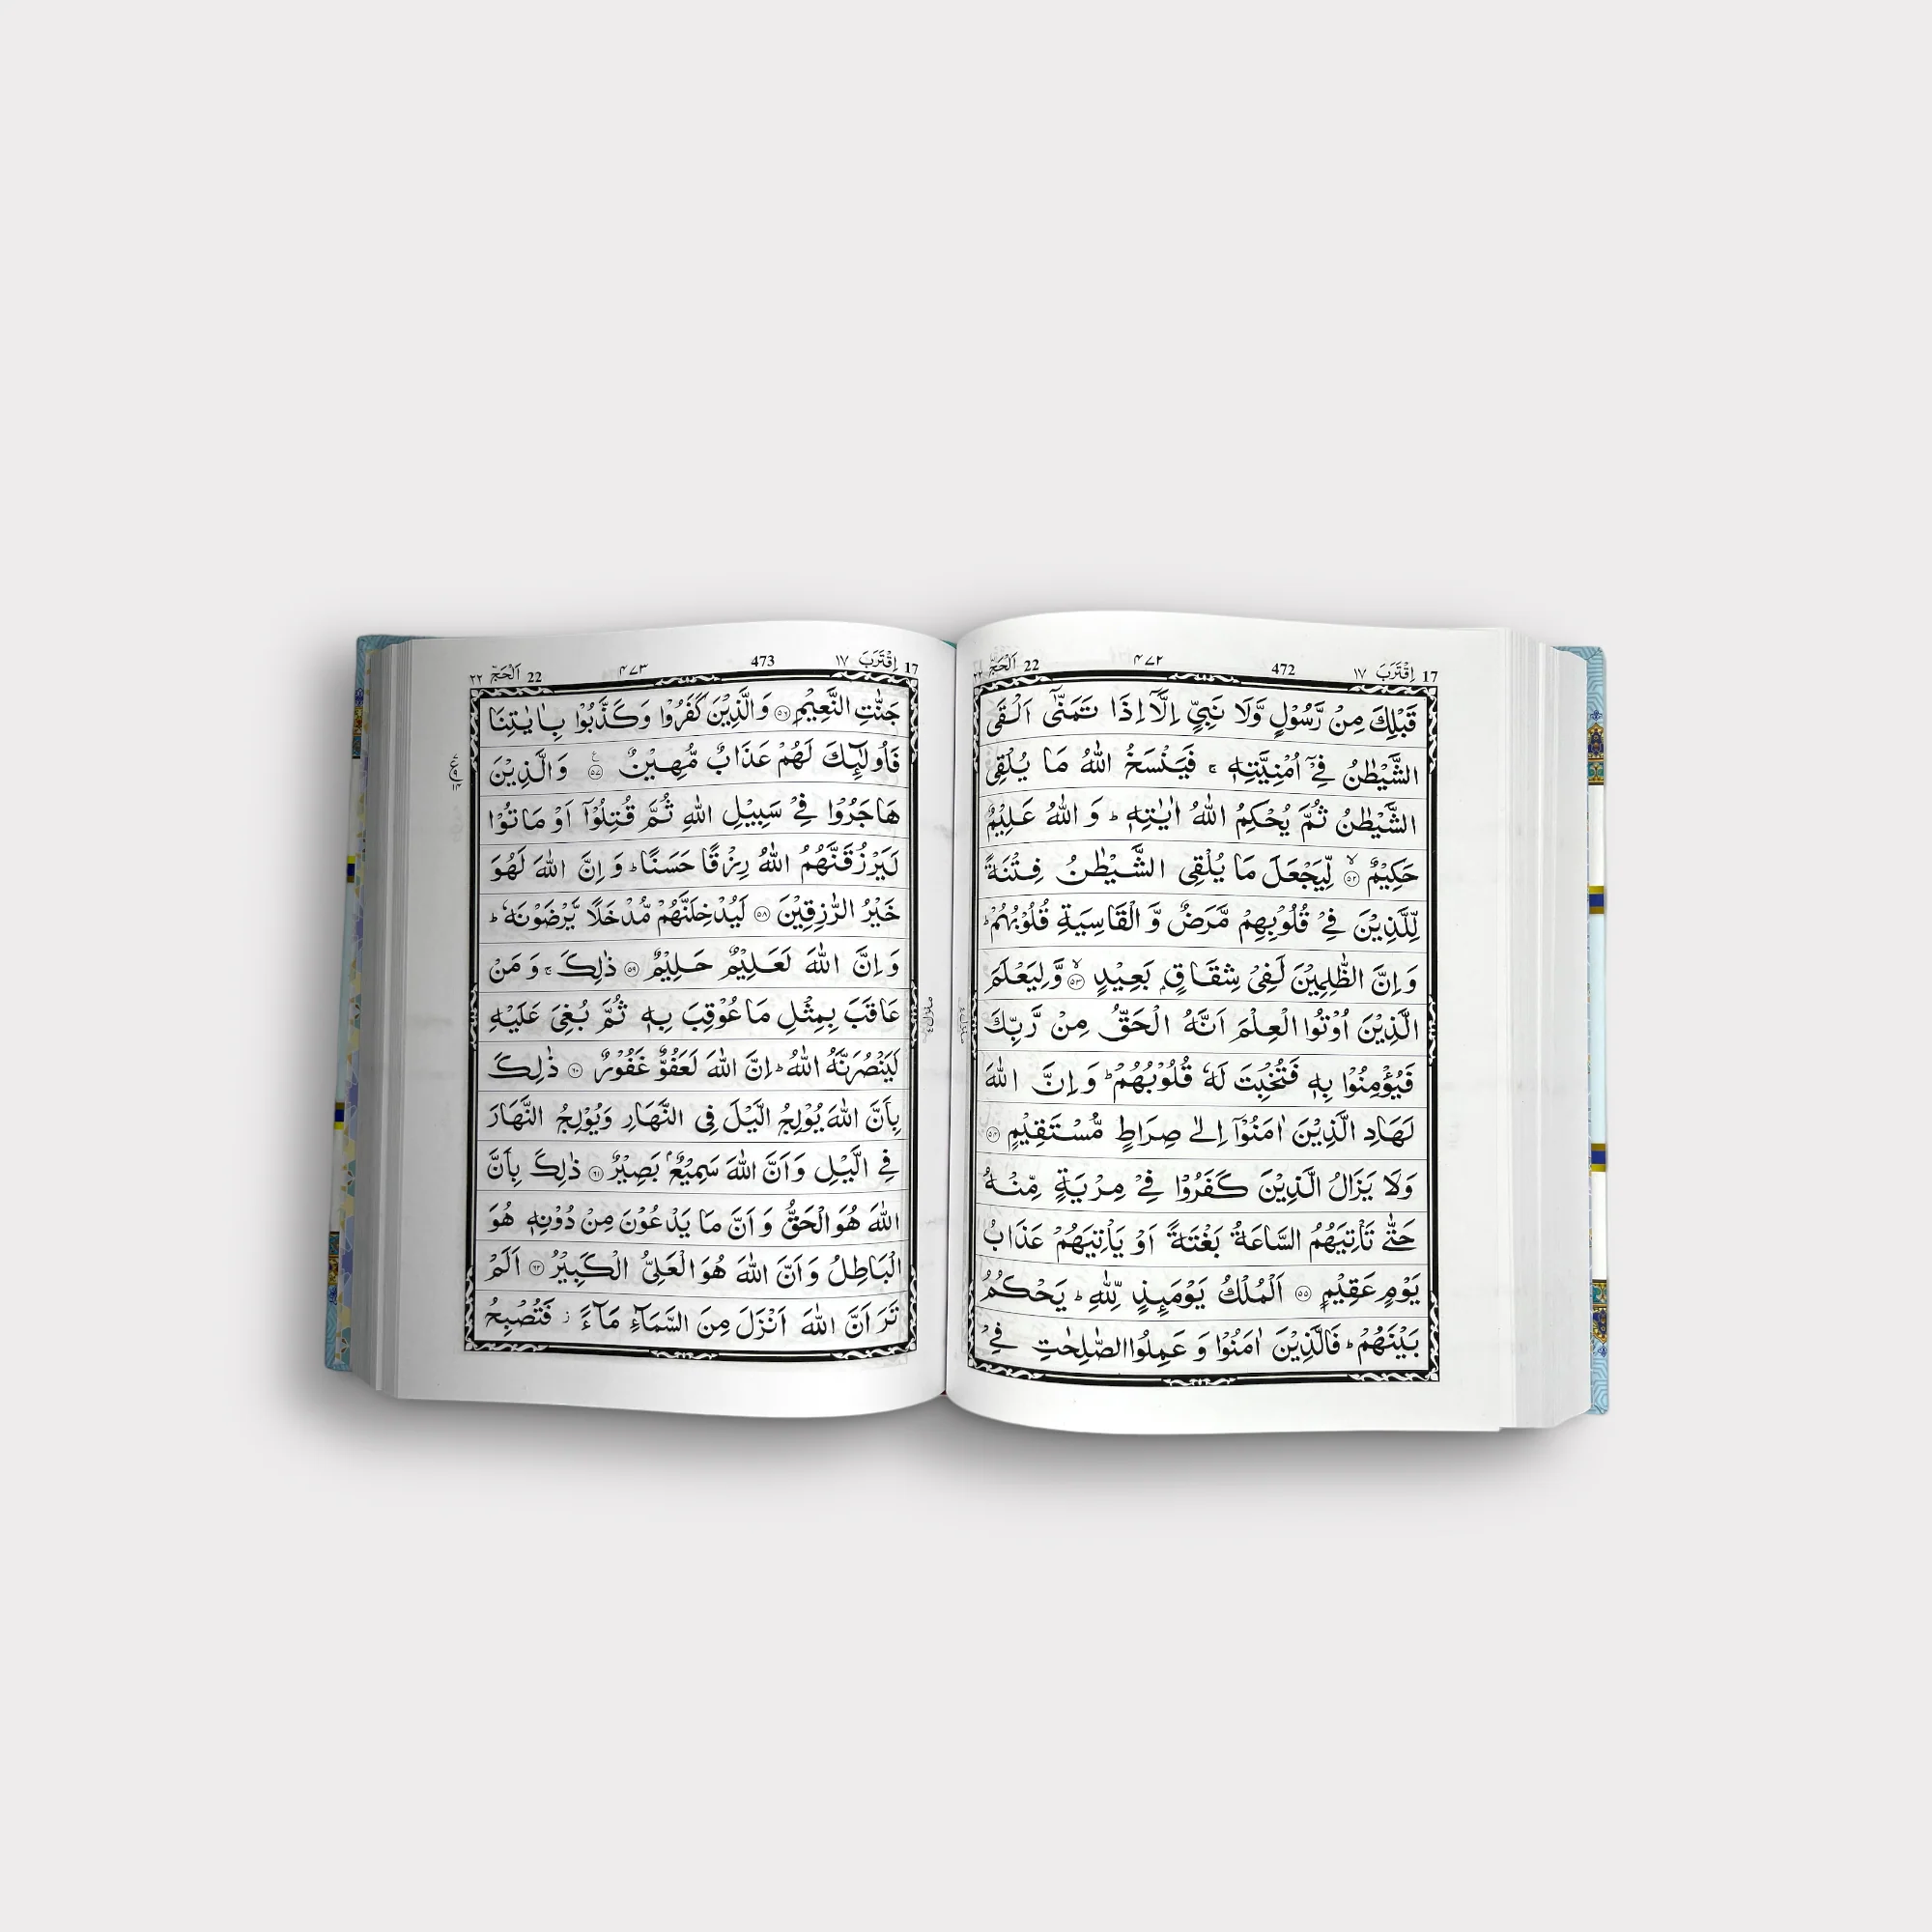 17 اِقْتَرَبَ ١٧ 472 ۴۷۲ 22 اَلْحَجّ ٢٢
قَبْلِكَ مِنْ رَّسُوْلٍ وَّلَا نَبِيٍّ اِلَّاۤ اِذَا تَمَنّٰۤى اَلْقَى
الشَّيْطٰنُ فِيْۤ اُمْنِيَّتِهٖ ۚ فَيَنْسَخُ اللّٰهُ مَا يُلْقِى
الشَّيْطٰنُ ثُمَّ يُحْكِمُ اللّٰهُ اٰيٰتِهٖ ؕ وَ اللّٰهُ عَلِيْمٌ
حَكِيْمٌ ۙ‏﴿٥٢﴾ لِّيَجْعَلَ مَا يُلْقِى الشَّيْطٰنُ فِتْنَةً
لِّلَّذِيْنَ فِيْ قُلُوْبِهِمْ مَّرَضٌ وَّ الْقَاسِيَةِ قُلُوْبُهُمْ ؕ
وَ اِنَّ الظّٰلِمِيْنَ لَفِيْ شِقَاقٍۭ بَعِيْدٍ ۙ‏﴿٥٣﴾ وَّ لِيَعْلَمَ
الَّذِيْنَ اُوْتُوا الْعِلْمَ اَنَّهُ الْحَقُّ مِنْ رَّبِّكَ
فَيُؤْمِنُوْا بِهٖ فَتُخْبِتَ لَهٗ قُلُوْبُهُمْ ؕ وَ اِنَّ اللّٰهَ
لَهَادِ الَّذِيْنَ اٰمَنُوْۤا اِلٰى صِرَاطٍ مُّسْتَقِيْمٍ ﴿٥٤﴾
وَلَا يَزَالُ الَّذِيْنَ كَفَرُوْا فِيْ مِرْيَةٍ مِّنْهُ
حَتّٰى تَاْتِيَهُمُ السَّاعَةُ بَغْتَةً اَوْ يَاْتِيَهُمْ عَذَابُ
يَوْمٍ عَقِيْمٍ ﴿٥٥﴾ اَلْمُلْكُ يَوْمَىِٕذٍ لِّلّٰهِ ؕ يَحْكُمُ
بَيْنَهُمْ ؕ فَالَّذِيْنَ اٰمَنُوْا وَ عَمِلُوا الصّٰلِحٰتِ فِيْ
17 اِقْتَرَبَ ١٧ 473 ۴۷۳ 22 اَلْحَجّ ٢٢
جَنّٰتِ النَّعِيْمِ ﴿٥٦﴾ وَ الَّذِيْنَ كَفَرُوْا وَ كَذَّبُوْا بِاٰيٰتِنَا
فَاُولٰٓىِٕكَ لَهُمْ عَذَابٌ مُّهِيْنٌ ﴿٥٧﴾ وَ الَّذِيْنَ
هَاجَرُوْا فِيْ سَبِيْلِ اللّٰهِ ثُمَّ قُتِلُوْۤا اَوْ مَاتُوْا
لَيَرْزُقَنَّهُمُ اللّٰهُ رِزْقًا حَسَنًا ؕ وَ اِنَّ اللّٰهَ لَهُوَ
خَيْرُ الرّٰزِقِيْنَ ﴿٥٨﴾ لَيُدْخِلَنَّهُمْ مُّدْخَلًا يَّرْضَوْنَهٗ ؕ
وَ اِنَّ اللّٰهَ لَعَلِيْمٌ حَلِيْمٌ ﴿٥٩﴾ ذٰلِكَ ۚ وَ مَنْ
عَاقَبَ بِمِثْلِ مَا عُوْقِبَ بِهٖ ثُمَّ بُغِيَ عَلَيْهِ
لَيَنْصُرَنَّهُ اللّٰهُ ؕ اِنَّ اللّٰهَ لَعَفُوٌّ غَفُوْرٌ ﴿٦٠﴾ ذٰلِكَ
بِاَنَّ اللّٰهَ يُوْلِجُ الَّيْلَ فِى النَّهَارِ وَيُوْلِجُ النَّهَارَ
فِى الَّيْلِ وَ اَنَّ اللّٰهَ سَمِيْعٌۢ بَصِيْرٌ ﴿٦١﴾ ذٰلِكَ بِاَنَّ
اللّٰهَ هُوَ الْحَقُّ وَ اَنَّ مَا يَدْعُوْنَ مِنْ دُوْنِهٖ هُوَ
الْبَاطِلُ وَ اَنَّ اللّٰهَ هُوَ الْعَلِيُّ الْكَبِيْرُ ﴿٦٢﴾ اَلَمْ
تَرَ اَنَّ اللّٰهَ اَنْزَلَ مِنَ السَّمَآءِ مَآءً ز فَتُصْبِحُ